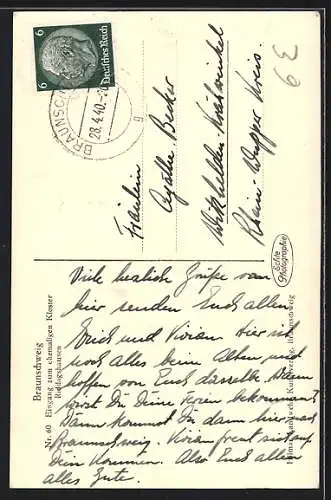 6 Deutsches Reich 6
BRAUNSCHWEIG
28.4.40.-20
g
Fräulein
Agathe Becker
Witzhelden-Krähwinkel
Rhein Wupper Kreis.
63
Echte
Photographie
Braunschweig
Nr. 60 Eingang zum ehemaligen Kloster
Riddagshausen
Viele herzliche Grüße von
hier senden Euch allen
Erich und Vivian. Hier ist
noch alles beim Alten und
hoffen von Euch dasselbe. Wann
wirst Du Deine Ferien bekommen?
Dann kommst Du dann hier nach
Braunschweig. Vivian freut sich auf
Dein Kommen. Also Euch allen
alles Gute.